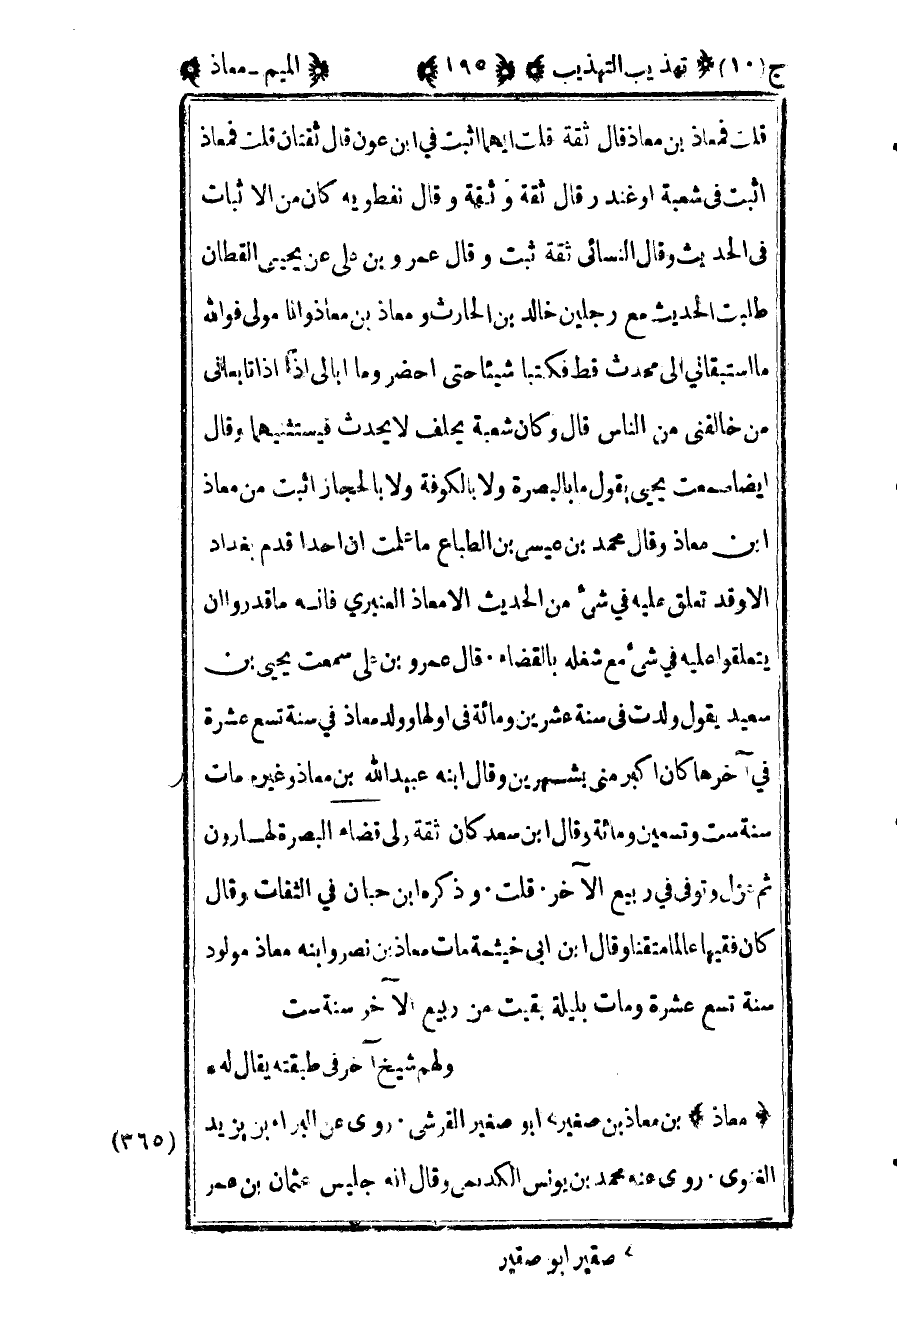 ج (١٠) ﴿ تهذيب التهذيب ﴾ ﴿ ١٩٥ ﴾ ﴿ الميم - معاذ ﴾
قلت فمعاذ بن معاذ قال ثقة قلت ايهما اثبت في ابن عون قال ثقتان قلت فمعاذ
اثبت فى شعبة او غندر قال ثقة و ثقة و قال نفطويه كان من الا ثبات
فى الحديث وقال النسائى ثقة ثبت و قال عمر و بن علي عن يحيى القطان
طلبت الحديث مع رجلين خالد بن الحارث و معاذ بن معاذ وانا مولى فوالله
ما استبقاني الى محدث قط فكتبا شيئا حتى احضر وما ابالى اذا اذا تابعانى
من خالفنى من الناس قال وكان شعبة يحلف لا يحدث فيستثنيهما وقال
ايضا سمعت يحيى يقول ما بالبصرة ولا بالكوفة ولا بالحجاز اثبت من معاذ
ابن معاذ وقال محمد بن عيسى بن الطباع ما علمت ان احدا قدم بغداد
الا وقد تعلق عليه في شئ من الحديث الا معاذ العنبري فانه ما قدروا ان
يتعلقوا عليه في شئ مع شغله بالقضاء · قال عمرو بن علي سمعت يحيى بن
سعيد يقول ولدت فى سنة عشرين ومائة فى اولها وولد معاذ في سنة تسع عشرة
في آخرها كان اكبر منى بشهرين وقال ابنه عبيدالله بن معاذ وغيره مات
سنة ست وتسعين ومائة وقال ابن سعد كان ثقة ولى قضاء البصرة لهارون
ثم عزل وتوفى في ربيع الآخر · قلت · و ذكره ابن حبان في الثقات وقال
كان فقيها عالما متقنا وقال ابن ابى خيثمة مات معاذ بن نصر و ابنه معاذ مولود
سنة تسع عشرة ومات بليلة بقيت من ربيع الآخر سنة ست
ولهم شيخ آخر فى طبقته يقال له ·
﴿ معاذ ﴾ بن معاذ بن صغير> ابو صغير القرشى · روى عن البراء بن يزيد
(٣٦٥)
الغنوى · روى عنه محمد بن يونس الكديمى وقال انه جليس عثمان بن عمر
> صقير ابو صقير